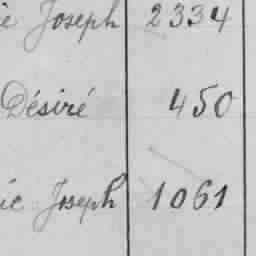 ie Joseph 2334
Désiré 450
ie Joseph 1061